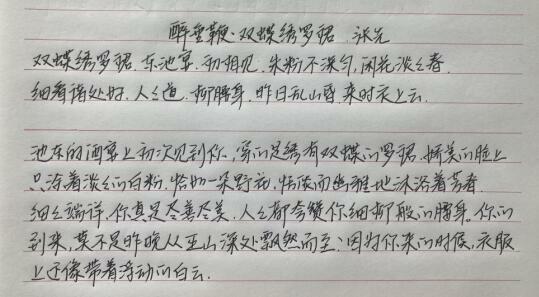 醉垂鞭·双蝶绣罗裙 张先
双蝶绣罗裙,东池宴,初相见。朱粉不深匀,闲花淡淡春。
细看诸处好,人人道,柳腰身。昨日乱山昏,来时衣上云。
池东的酒宴上初次见到你,穿的是绣有双蝶的罗裙,娇美的脸上
只涂着淡淡的白粉,恰如一朵野花,恬淡而幽雅地沐浴着芳春。
细细端详,你真是尽善尽美,人人都会赞你细柳般的腰身。你的
到来,莫不是昨晚从巫山深处飘然而至,因为你来的时候,衣服
上还像带着浮动的白云。